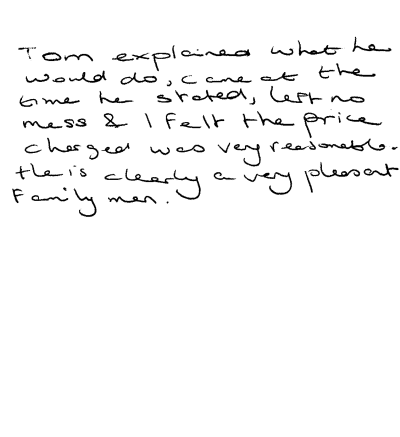 Tom explained what he
would do, came at the
time he stated, left no
mess & I felt the price
charged was very reasonable.
He is clearly a very pleasant
Family man.